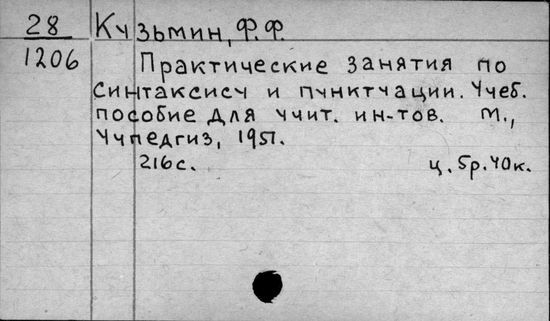 28 Кузьмин, Ф.Ф.
1206 Практические занятия по
синтаксису и пунктуации. Учеб.
пособие для учит. ин-тов. М.,
Учпедгиз, 1951.
216с. ц. 5р.40к.